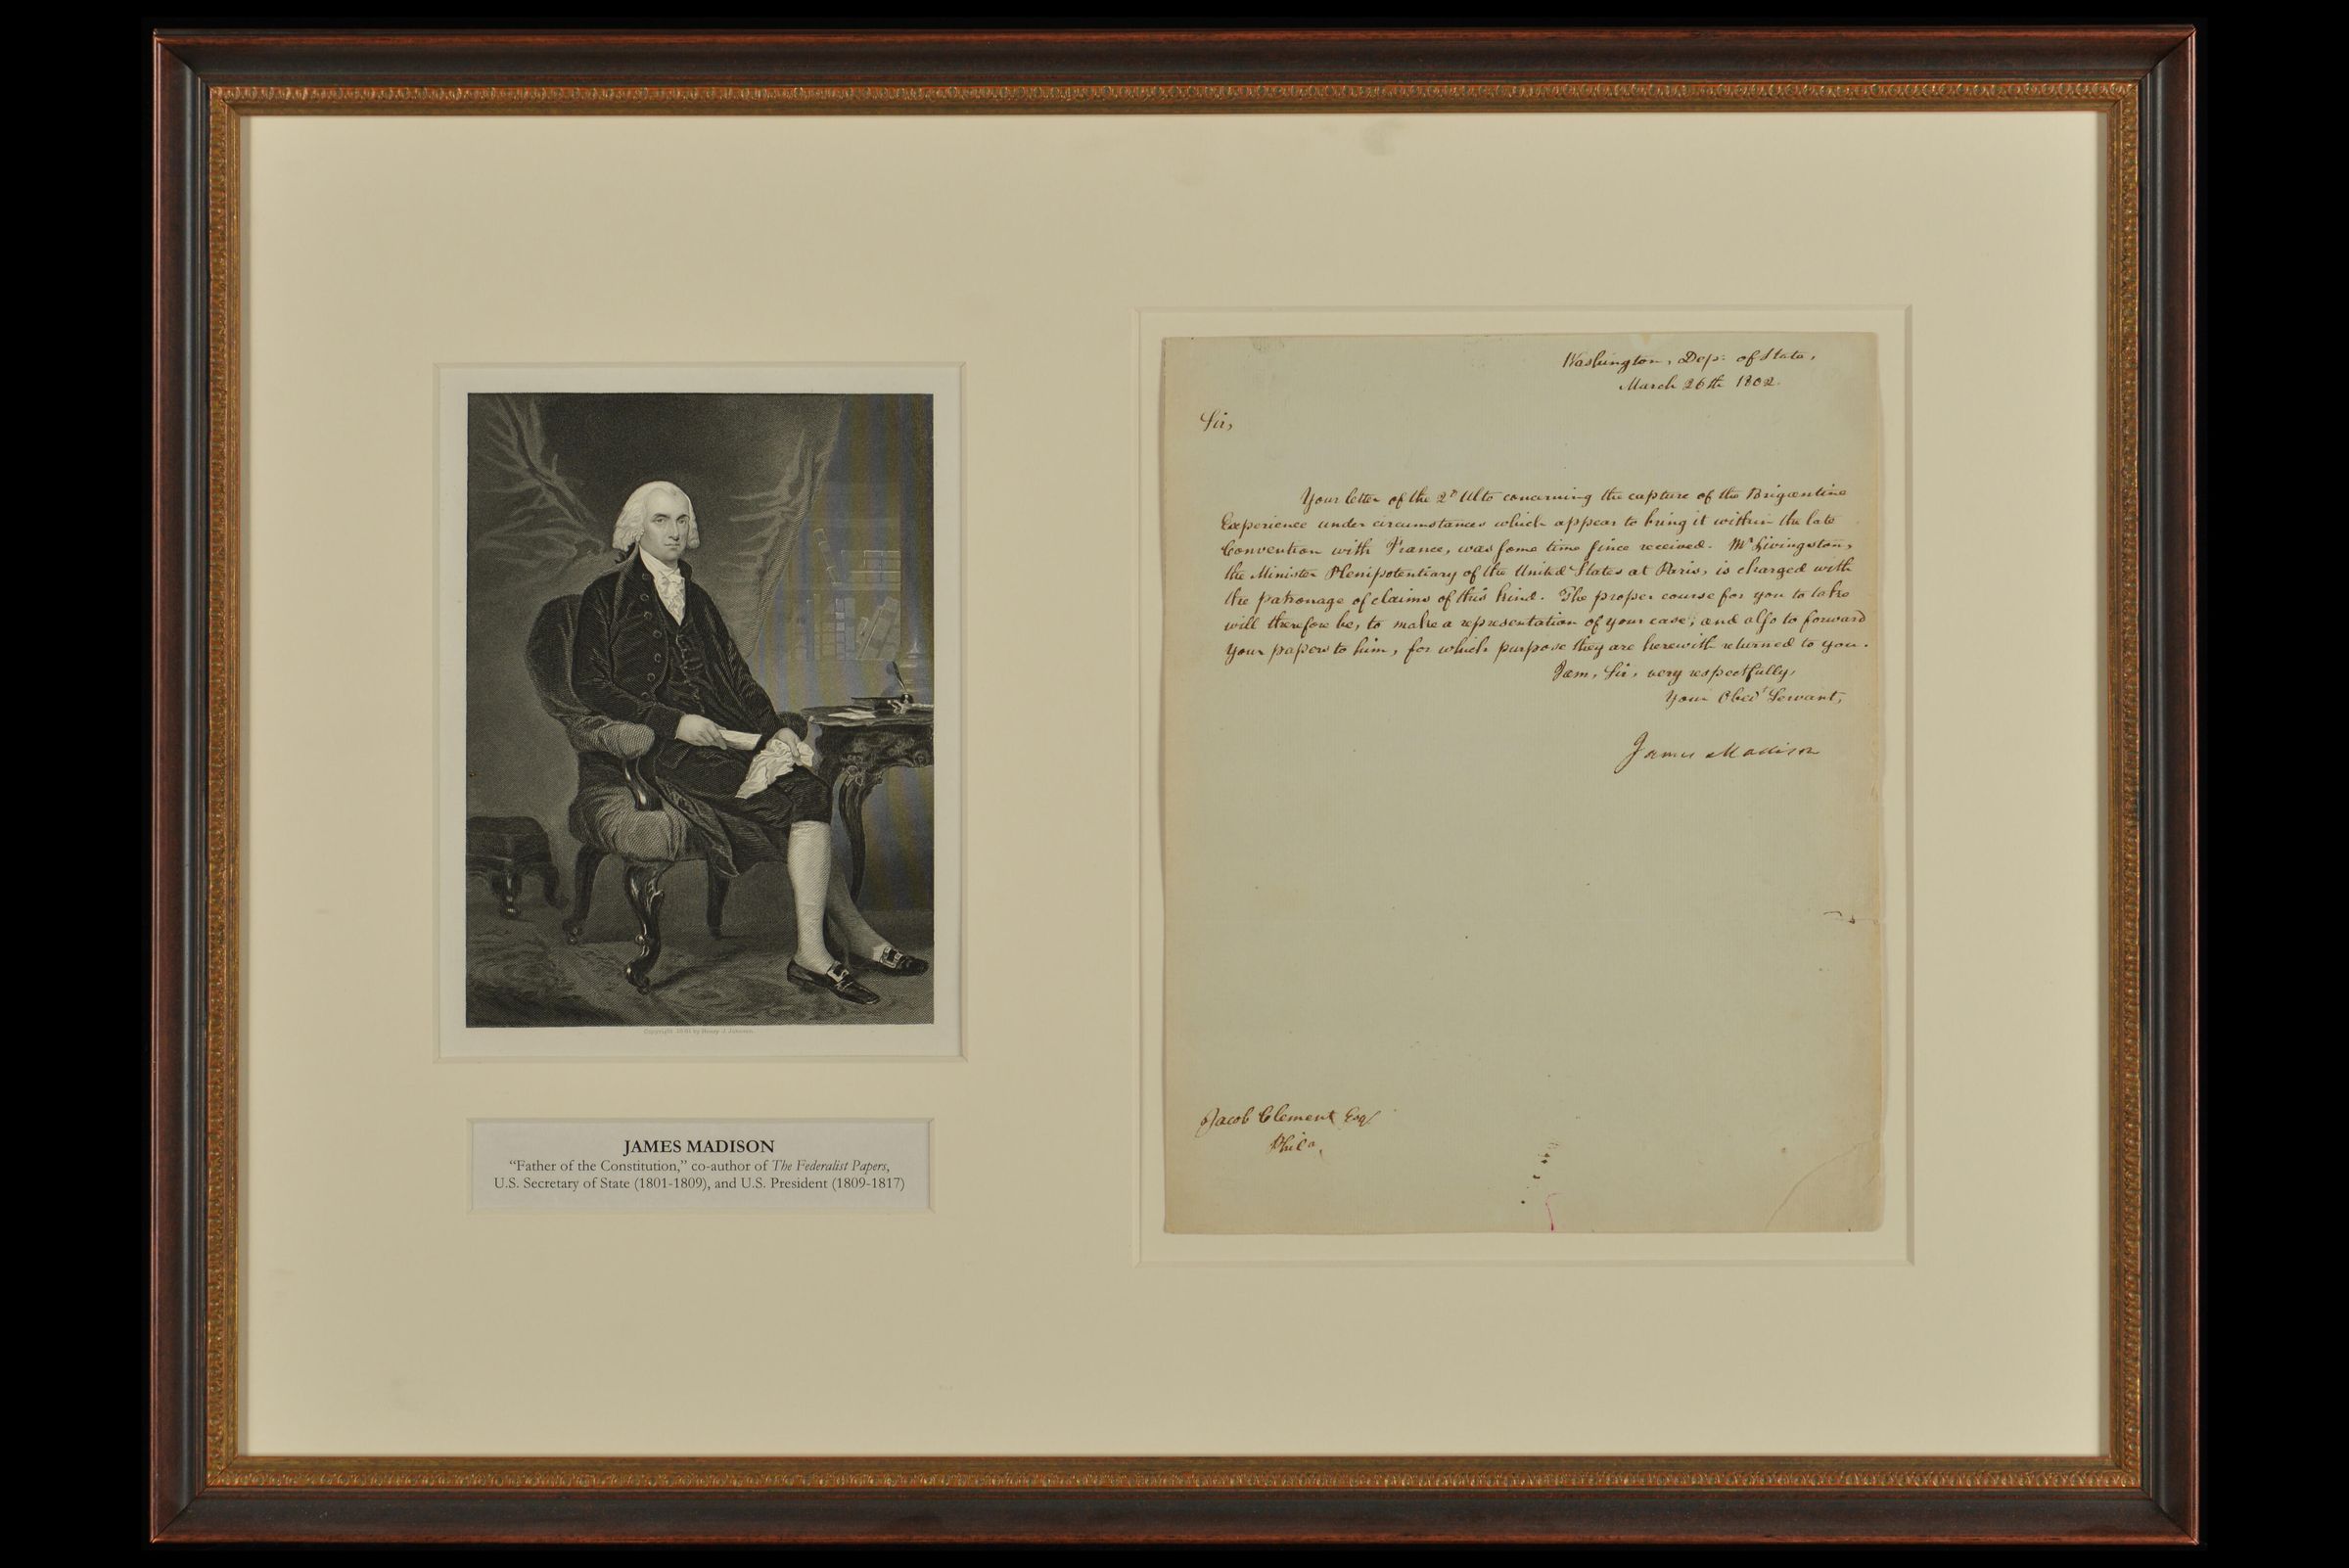 Washington, Dep: of State,
March 26th 1802.
Sir,
Your letter of the 2d Ulto concerning the capture of the Brigantine
Experience under circumstances which appear to bring it within the late
Convention with France, was some time since received. Mr Livingston,
the Minister Plenipotentiary of the United States at Paris, is charged with
the patronage of claims of this kind. The proper course for you to take
will therefore be, to make a representation of your case, and also to forward
your papers to him, for which purpose they are herewith returned to you.
I am, Sir, very respectfully,
Your Obedt Servant,
James Madison
Jacob Clement Esq
Phila.
Copyright by Henry J. Johnson.
JAMES MADISON
“Father of the Constitution,” co-author of The Federalist Papers,
U.S. Secretary of State (1801-1809), and U.S. President (1809-1817)